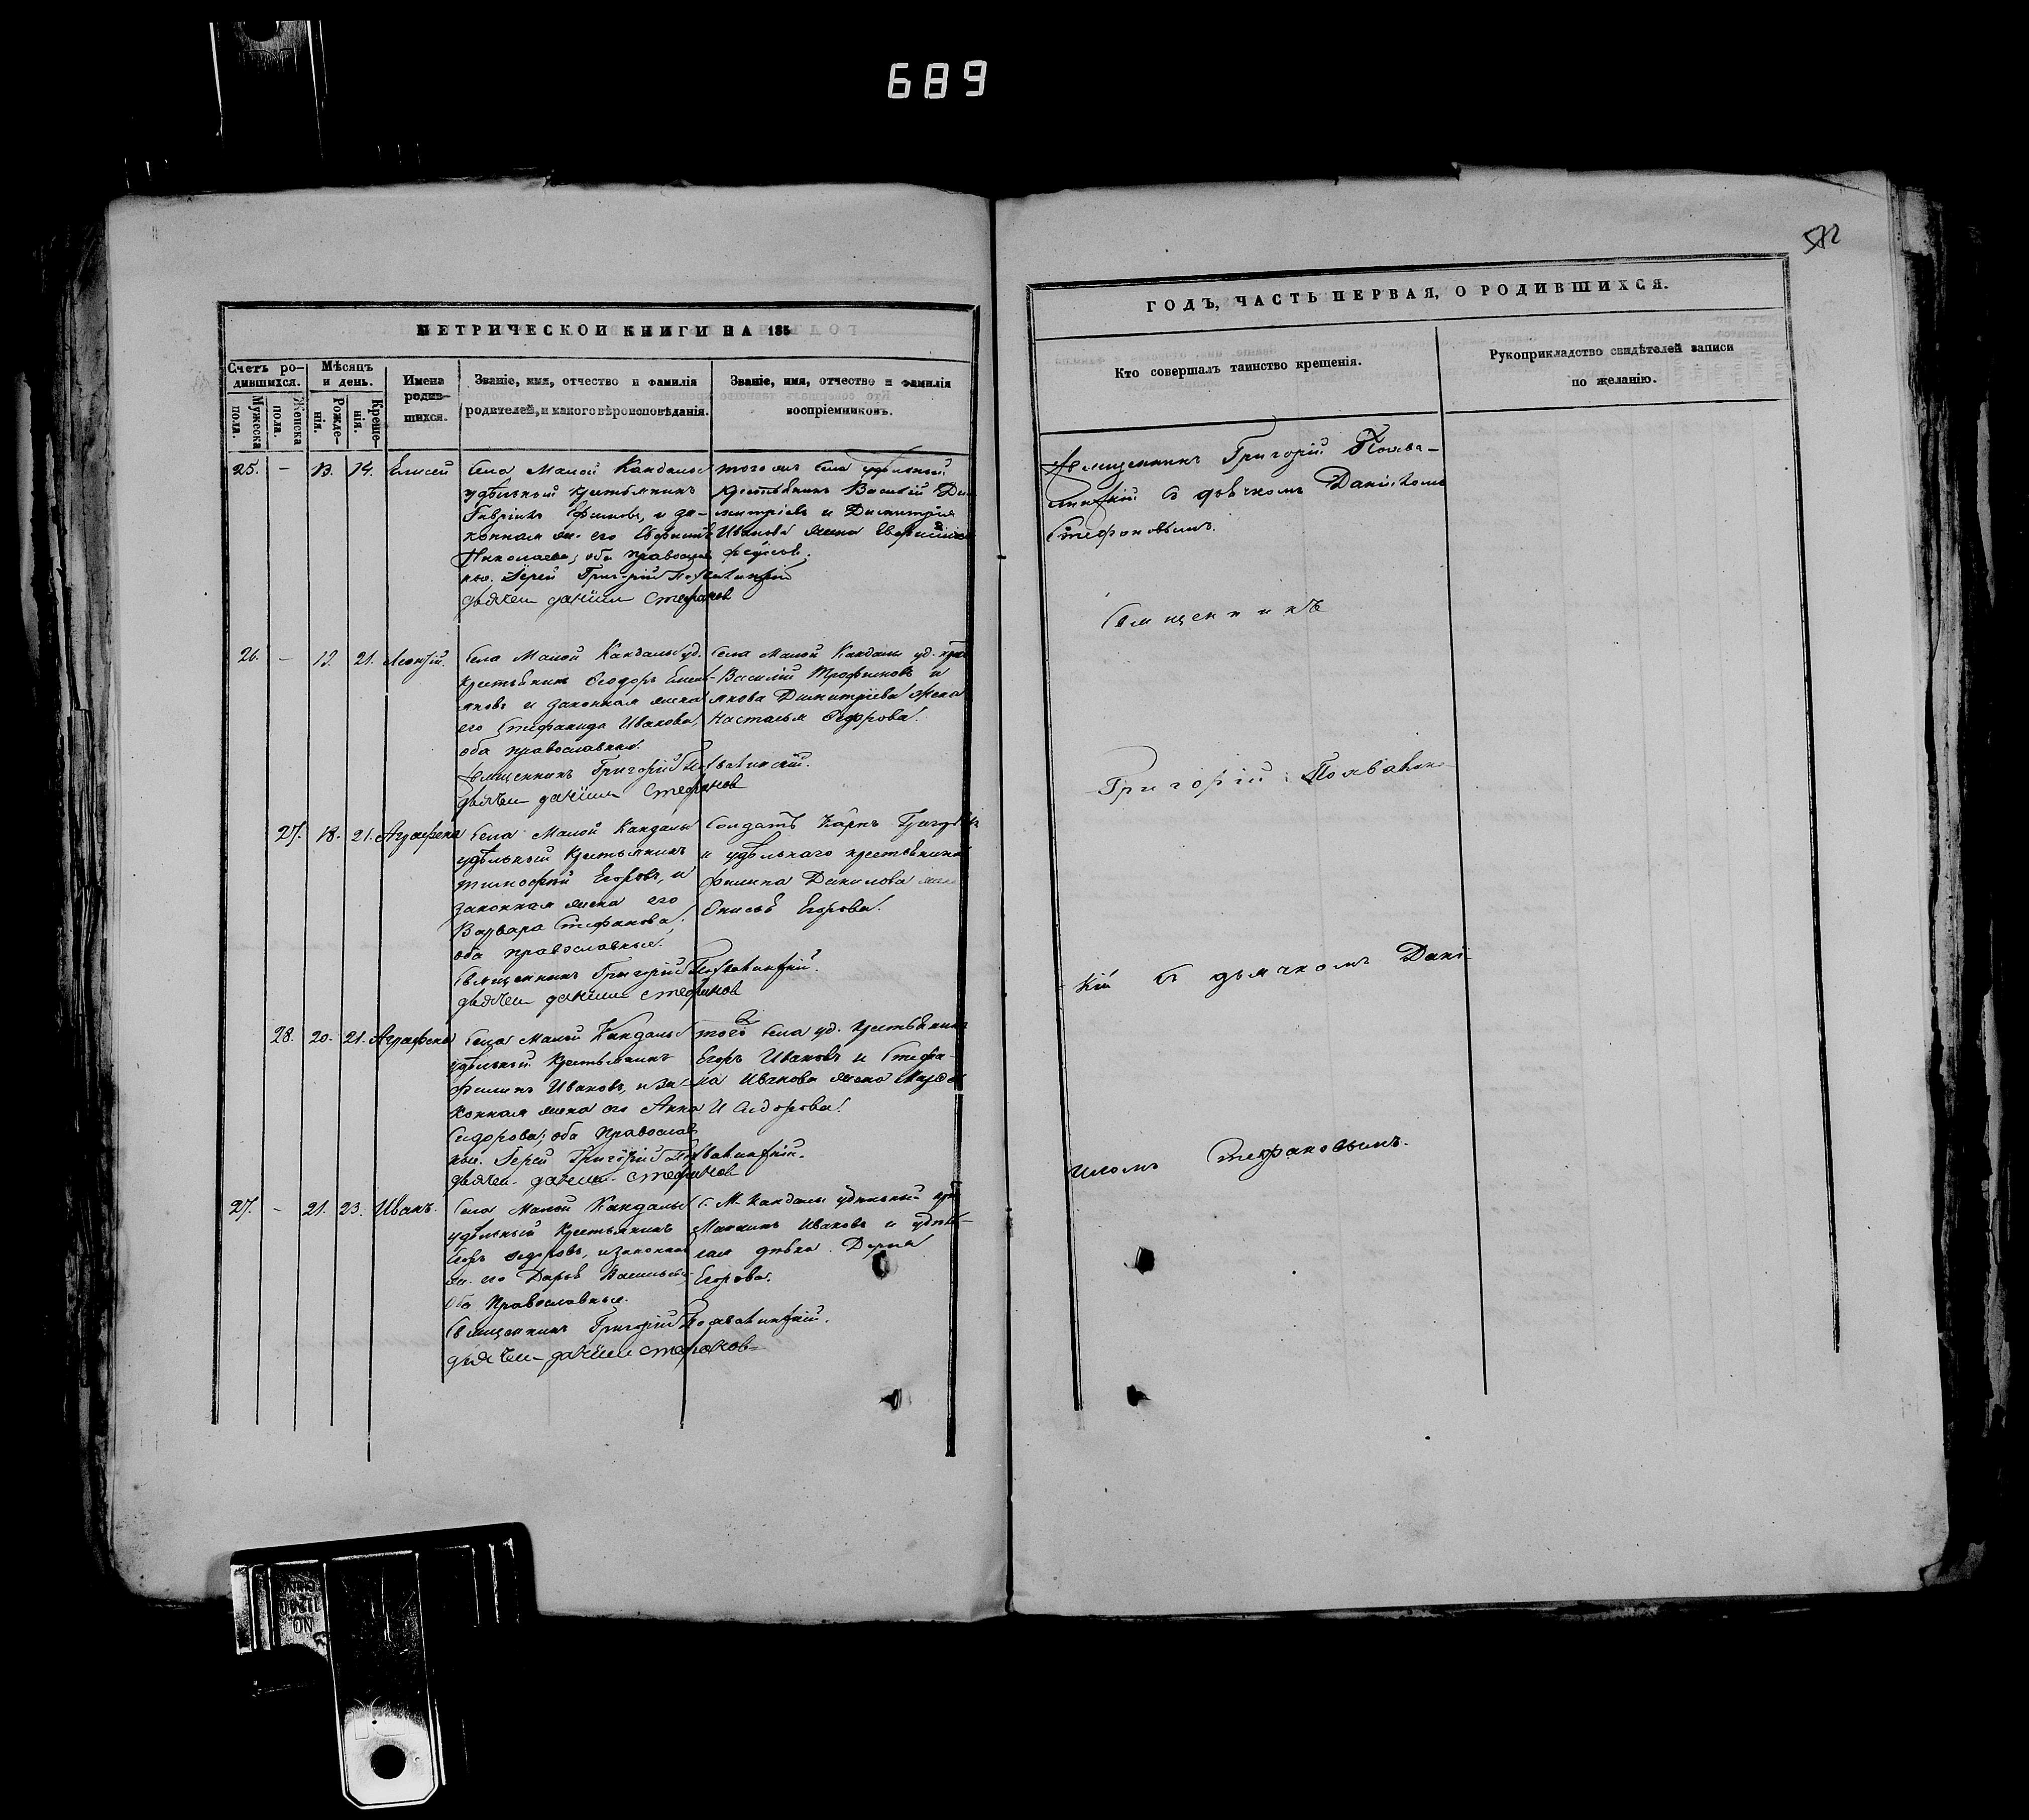 689
582
МЕТРИЧЕСКОЙ КНИГИ НА 185
Счетъ ро-
дившихся.
Мужеска пола.
Женска пола.
Мѣсяцъ
и день.
Рожде-
нія.
Креще-
нія.
Имена
родив-
шихся.
Званіе, имя, отчество и фамилія
родителей, и какого вѣроисповѣданія.
Званіе, имя, отчество и фамилія
воспріемниковъ.
25. - 13. 14. Елисей
Села Малой Кандалы
удѣльный крестьянинъ
Гавріилъ Ефимовъ, и за-
конная же. его
Николаева; оба православ
ные. Іерей Григорій Похвалинскій
дьячекъ даніилъ Стефановъ
того же села удѣльный
крестьянинъ Василій Ди-
митріевъ и Димитрія
Иванова жена
26. - 19. 21. Леонтій.
Села Малой Кандалы уд.
крестьянинъ Ѳеодоръ
и законная жена
его Стефанида Иванова,
оба православные.
Священникъ Григорій Похвалинскій.
дьячекъ даніилъ Стефановъ
Села Малой Кандалы уд. кре
Василій Трофимовъ и
Якова Димитріева жена
Настасья
27. 18. 21. Аграфена
Села Малой Кандалы
удѣльный крестьянинъ
тимоѳей Егоровъ, и
законная жена его
Варвара Стефанова,
оба православные.
Священникъ Григорій Похвалинскій.
дьячекъ даніилъ стефановъ
Солдатъ Карпъ
и удѣльнаго крестьянина
филипа Данилова жена
Егорова.
28. 20. 21. Аграфена
Села Малой Кандалы
удѣльный крестьянинъ
филипъ Ивановъ, и за-
конная жена его Анна
Сидорова; оба православ
ные. Іерей Григорій Похвалинскій.
дьячекъ даніилъ стефановъ
того села уд. крестьянинъ
Егоръ Ивановъ и Стефа-
на Иванова жена
Исидорова.
27. - 21. 23. Иванъ.
Села Малой Кандалы
удѣльный крестьянинъ
и законная
же. его Дарья Васильева
Оба православные.
Священникъ Григорій Похвалинскій.
дьячекъ даніилъ стефановъ
С. М. Кандалы удѣльный кре
Ивановъ и удѣль-
ная дѣвка Дарья
Егорова.
ГОДЪ, ЧАСТЬ ПЕРВАЯ, О РОДИВШИХСЯ.
Кто совершалъ таинство крещенія.
Рукоприкладство свидѣтелей записи
по желанію.
Священникъ Григорій Похва-
линскій съ дьячкомъ Даніиломъ
Стефановымъ.
Священникъ
Григорій Похвалинс-
кій съ дьячкомъ Дані-
иломъ Стефановымъ.